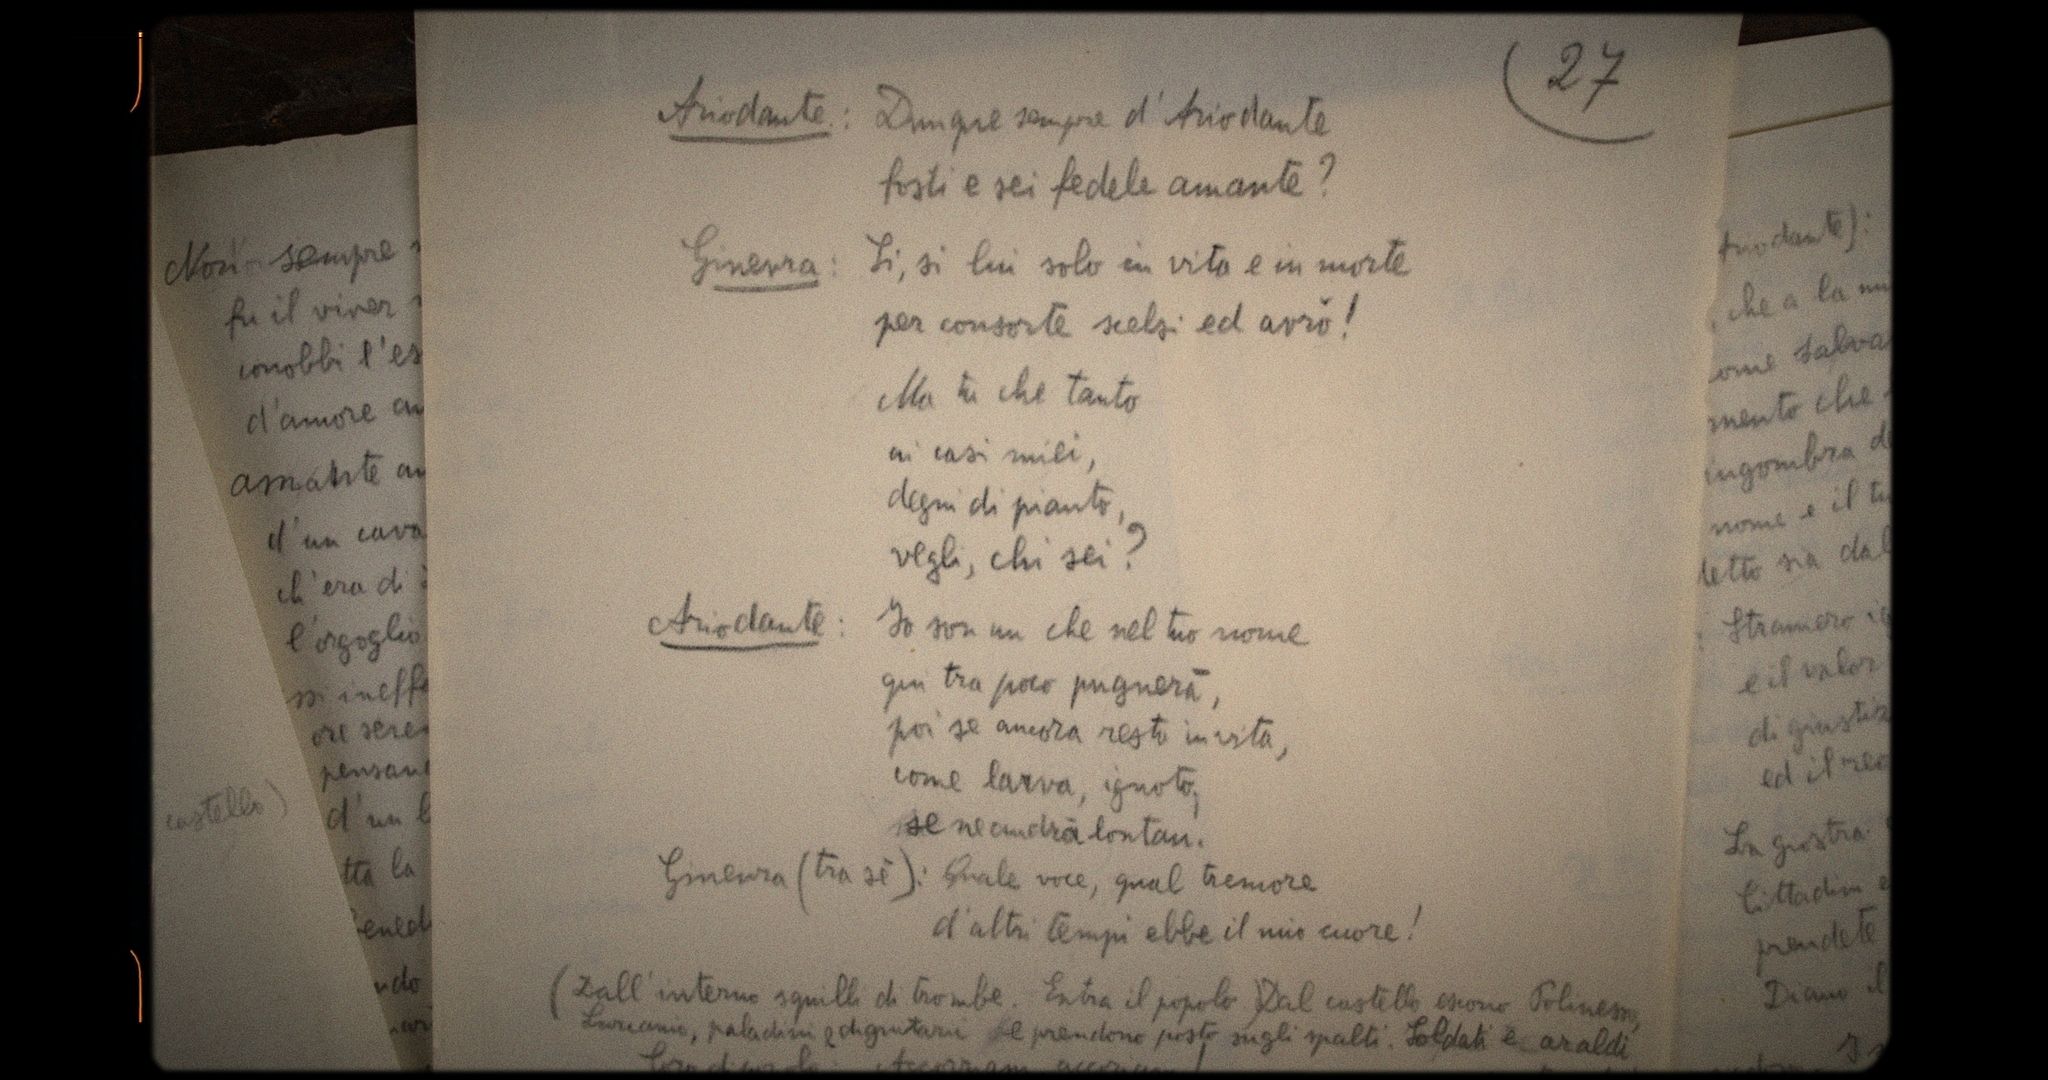 27
Ariodante: Dunque sempre d'Ariodante
fosti e sei fedele amante?
Ginevra: Sì, sì lui solo in vita e in morte
per consorte scelsi ed avrò!
Ma tu che tanto
ai casi miei,
degni di pianto,
vegli, chi sei?
Ariodante: Io son un che nel tuo nome
qui tra poco pugnerà,
poi se ancora resto in vita,
come larva, ignoto,
se ne andrà lontan.
Ginevra (tra sè): Quale voce, qual tremore
d'altri tempi ebbe il mio cuore!
(Dall'interno squilli di trombe. Entra il popolo. Dal castello escono Polinesso,
Lurcanio, paladini e dignitari e prendono posto sugli spalti. Soldati e araldi
Non sempre
fu il viver
conobbi l'es
d'amore
amante
d'un cava
ch'era di
l'orgoglio
si ineffa
ore seren
pensan
castello)
d'un
tta la
ndo
Ariodante):
che a la
come salva
mento che
ingombra d
nome e il tu
detto sia dal
Straniero ig
e il valor
di giustiz
ed il reo
La giostra
Cittadini e
prendete
Diamo il